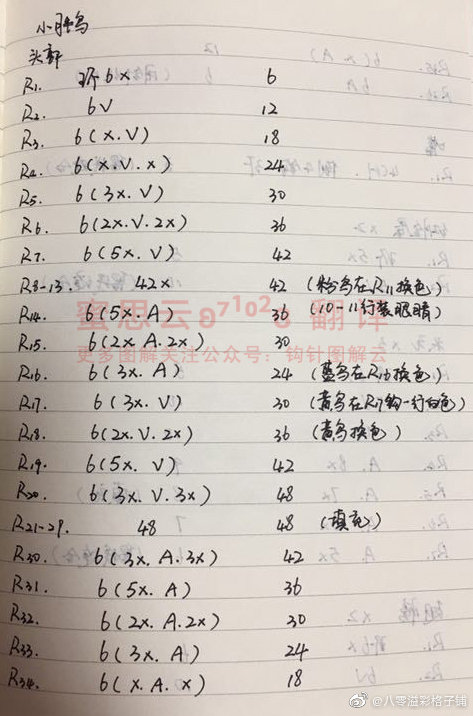 小胖鸟
头部
R1. 环6x 6
R2. 6V 12
R3. 6(x.V) 18
R4. 6(x.V.x) 24
R5. 6(3x.V) 30
R6. 6(2x.V.2x) 36
R7. 6(5x.V) 42
R8-13. 42x 42 (粉鸟在R11换色)
R14. 6(5x.A) 36 (10-11行装眼睛)
R15. 6(2x.A.2x) 30
R16. 6(3x.A) 24 (蓝鸟在R16换色)
R17. 6(3x.V) 30 (黄鸟在R17钩一行白色)
R18. 6(2x.V.2x) 36 (黄鸟换色)
R19. 6(5x.V) 42
R20. 6(3x.V.3x) 48
R21-29. 48 48 (填充)
R30. 6(3x.A.3x) 42
R31. 6(5x.A) 36
R32. 6(2x.A.2x) 30
R33. 6(3x.A) 24
R34. 6(x.A.x) 18
蜜思云 971020 翻译
更多图解关注公众号：钩针图解云
@八零溢彩格子铺